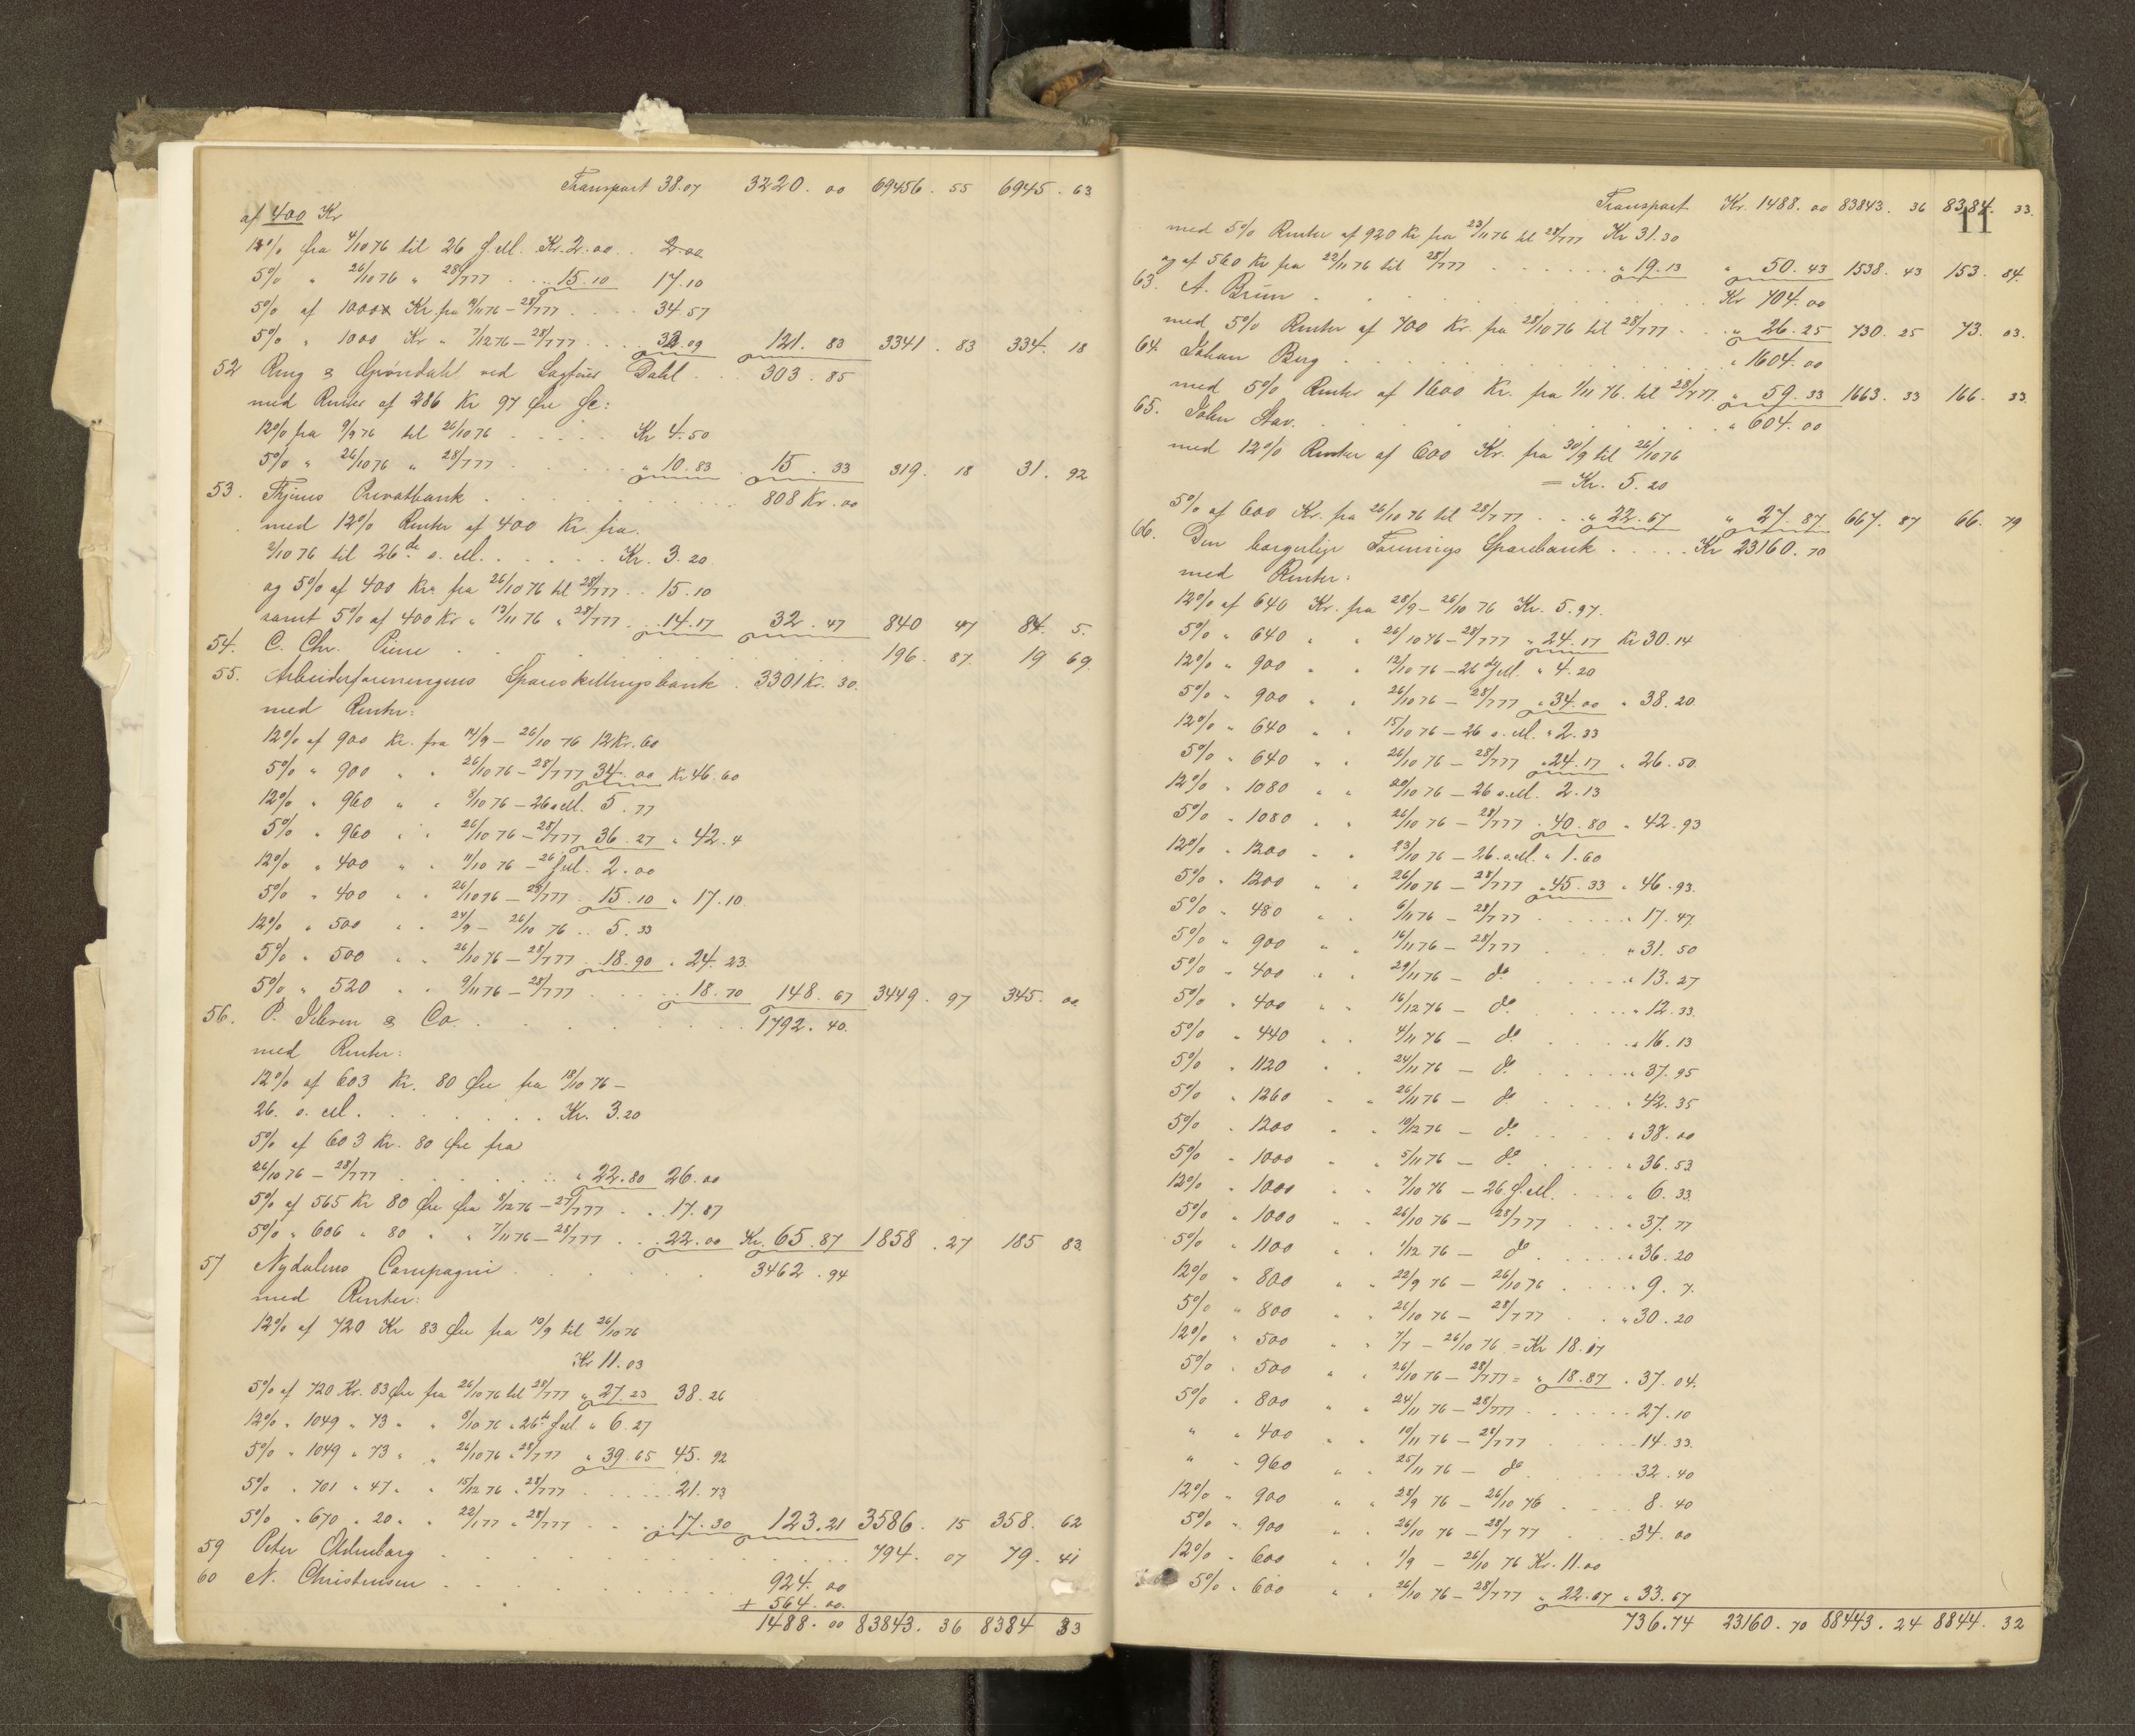 Transport 38.07 3220.00 69456.55 6945.63
af 400 Kr
12% fra 4/10 76 til 26 f.M. Kr. 2.00 2.00
5% " 26/10 76 " 28/7 77 15.10 17.10
5% af 1000 Kr fra 4/11 76 - 28/7 77 34.57
5% " 1000 Kr " 7/12 76 - 28/7 77 32.09 121.83 3341.83 334.18
52 Ring & Grøndahl ved Sagfører Dahl 303.85
med Renter af 286 Kr 97 Øre
12% fra 9/9 76 til 26/10 76 Kr 4.50
5% " 26/10 76 " 28/7 77 " 10.83 15.33 319.18 31.92
53. Privatbank 808 Kr.00
med 12% Renter af 400 Kr fra
2/10 76 til 26de s. M. Kr. 3.20
og 5% af 400 Kr. fra 26/10 76 til 28/7 77 15.10
samt 5% af 400 Kr " 13/11 76 " 28/7 77 14.17 32.47 840 47 84.5.
54. C. Chr. 196.87. 19 69.
55. Arbeiderforeningens Spareskillingsbank 3301 Kr. 30.
med Renter:
12% af 900 Kr. fra 14/9 - 26/10 76 12 Kr. 60
5% " 900 " " 26/10 76 - 28/7 77 34.00 Kr 46.60
12% " 960 " " 8/10 76 - 26 s.M. 5.77
5% " 960 " " 26/10 76 - 28/7 77 36.27 " 42.4
12% " 400 " " 11/10 76 - 26 f.M. 2.00
5% " 400 " " 26/10 76 - 28/7 77 15.10 " 17.10
12% " 500 " " 24/9 - 26/10 76 5.33
5% " 500 " " 26/10 76 - 28/7 77 18.90 " 24.23
5% " 520 " " 9/11 76 - 28/7 77 18.70 148.67 3449.97 345.00
56. P. & Co. 1792.40.
med Renter:
12% af 603 Kr. 80 Øre fra 18/10 76 -
26. s. M. Kr. 3.20
5% af 603 Kr. 80 Øre fra
26/10 76 - 28/7 77 " 22.80 26.00
5% af 565 Kr 80 Øre fra 8/12 76 - 27/7 77 17.87
5% " 606 " 80 " " 7/11 76 - 28/7 77 22.00 Kr. 65.87 1858.27 185 83
57 Nydalens Compagni 3462.94
med Renter:
12% af 720 Kr 83 Øre fra 10/9 til 26/10 76
Kr 11.03
5% af 720 Kr. 83 Øre fra 26/10 76 til 28/7 77 " 27.23 38.26
12% " 1049 " 73 " " 8/10 76 " 26de f.M. " 6.27
5% " 1049 " 73 " " 26/10 76 " 28/7 77 " 39.65 45.92
5% " 701 " 47 " " 15/12 76 " 28/7 77 21.73
5% " 670 " 20 " " 22/1 77 " 28/7 77 17.30 123.21 3586.15 358.62
59 Peter Oldenborg 794.07 79.41
60 N. Christensen 924.00
+ 564.00.
1488.00 83843.36 8384 33
Transport Kr. 1488.00 83843.36 8384.33.
11
med 5% Renter af 920 Kr fra 23/11 76 til 28/7 77 Kr 31.30
og af 560 Kr fra 22/11 76 til 28/7 77 " 19.13 " 50.43 1538.43 153.84.
63. A. Brun Kr 704.00
med 5% Renter af 700 Kr. fra 28/10 76 til 28/7 77 " 26.25 730.25 73.03.
64. Johan Berg " 1604.00
med 5% Renter af 1600 Kr. fra 1/11 76. til 28/7 77 " 59.33 1663.33 166.33.
65. John Stav. " 604.00
med 12% Renter af 600 Kr. fra 30/9 til 26/10 76
= Kr. 5.20
5% af 600 Kr. fra 26/10 76 til 28/7 77 " 22.67 " 27.87 667.87 66.79
66. Den borgerlige Forenings Sparebank Kr 23160.70
med Renter:
12% af 640 Kr. fra 28/9 - 26/10 76 Kr. 5.97.
5% " 640 " " 26/10 76 - 28/7 77 " 24.17 Kr 30.14
12% " 900 " " 12/10 76 - 26de f.M. " 4.20
5% " 900 " " 26/10 76 - 28/7 77 " 34.00 " 38.20
12% " 640 " " 15/10 76 - 26 s.M. " 2.33
5% " 640 " " 26/10 76 - 28/7 77 " 24.17 " 26.50
12% " 1080 " " 20/10 76 - 26 s.M. 2.13
5% " 1080 " " 26/10 76 - 28/7 77 " 40.80 " 42.93
12% " 1200 " " 23/10 76 - 26. s.M. " 1.60
5% " 1200 " " 26/10 76 - 28/7 77 " 45.33 " 46.93.
5% " 480 " " 6/11 76 - 28/7 77 " 17.47
5% " 900 " " 16/11 76 - 28/7 77 " 31.50
5% " 400 " " 29/11 76 - do " 13.27
5% " 400 " " 16/12 76 - do " 12.33.
5% " 440 " " 4/11 76 - do " 16.13
5% " 1120 " " 24/11 76 - do " 37.95
5% " 1260 " " 26/11 76 - do " 42.35
5% " 1200 " " 10/12 76 - do " 38.00
5% " 1000 " " 5/11 76 - do " 36.53
12% " 1000 " " 7/10 76 - 26. f.M. " 6.33.
5% " 1000 " " 26/10 76 - 28/7 77 " 37.77
5% " 1100 " " 1/12 76 - do " 36.20
12% " 800 " " 22/9 76 - 26/10 76 " 9.7.
5% " 800 " " 26/10 76 - 28/7 77 " 30.20
12% " 500 " " 7/7 - 26/10 76 = Kr 18.17
5% " 500 " " 26/10 76 - 28/7 77 = " 18.87 " 37.04.
5% " 800 " " 24/11 76 - 28/7 77 27.10
" " 400 " " 10/11 76 - 28/7 77 14.33.
" " 960 " " 25/11 76 - do 32.40
12% " 900 " " 28/9 76 - 26/10 76 8.40
5% " 900 " " 26/10 76 - 28/7 77 34.00
12% " 600 " " 1/9 - 26/10 76 Kr. 11.00
5% " 600 " " 26/10 76 - 28/7 77 " 22.67 " 33.67
736.74 23160.70 88443.24 8844.32